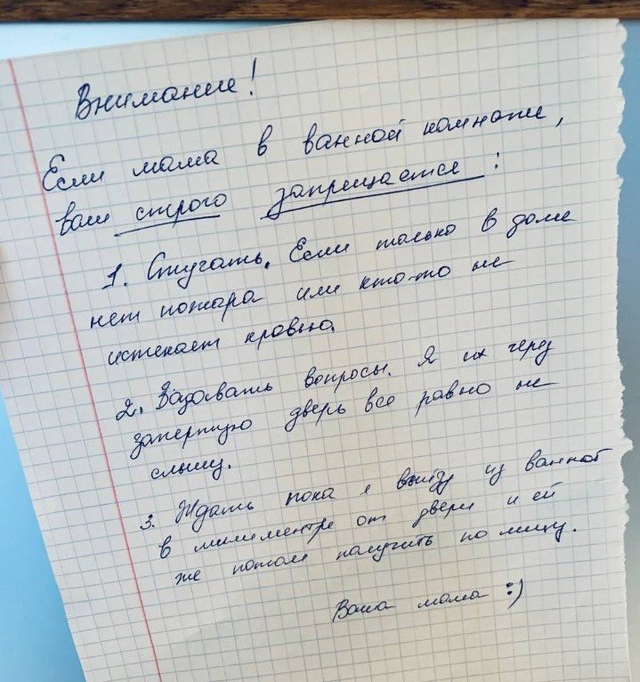 Внимание!
Если мама в ванной комнате,
вам строго запрещается:
1. Стучать. Если только в доме
нет пожара или кто-то не
истекает кровью.
2. Задавать вопросы. Я их через
запертую дверь все равно не
слышу.
3. Ждать пока я выйду из ванной
в миллиметре от двери и ей
же потом получить по лицу.
Ваша мама :)